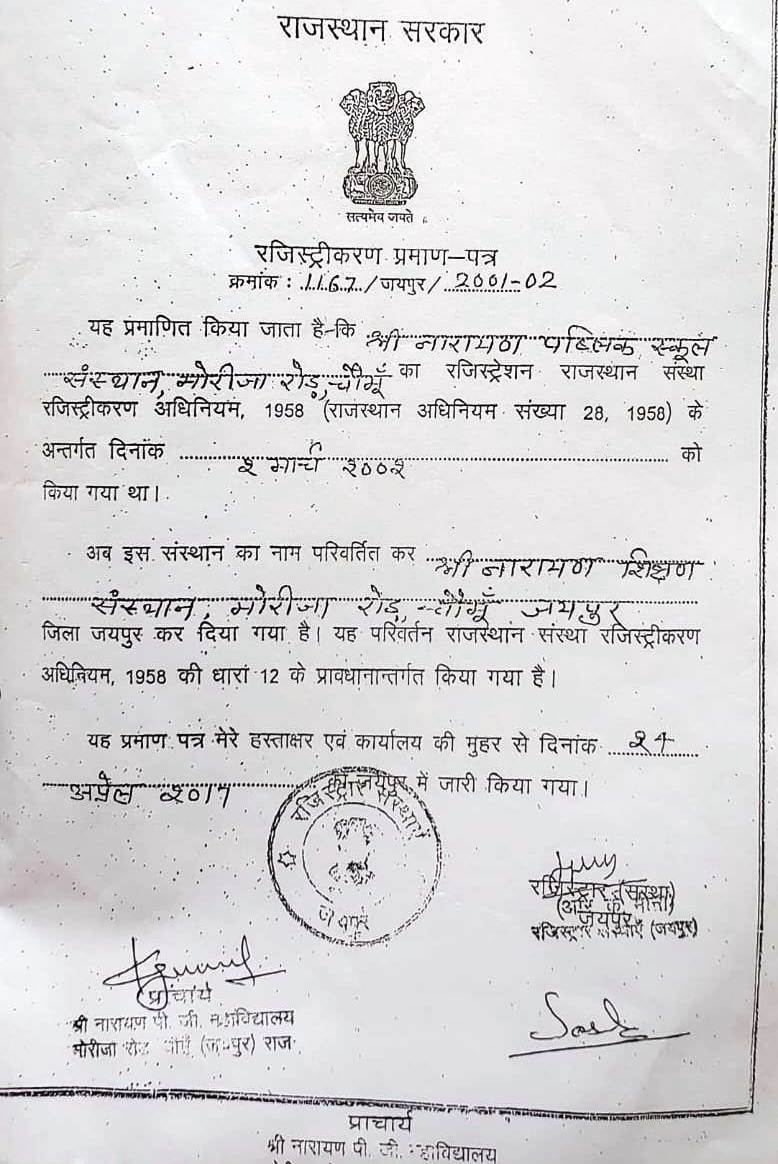 राजस्थान सरकार
सत्यमेव जयते
रजिस्ट्रीकरण प्रमाण–पत्र
क्रमांक : 1167 / जयपुर / 2001-02
यह प्रमाणित किया जाता है-कि श्री नारायण पब्लिक स्कूल
संस्थान, मोरीजा रोड़, चौमूँ का रजिस्ट्रेशन राजस्थान संस्था
रजिस्ट्रीकरण अधिनियम, 1958 (राजस्थान अधिनियम संख्या 28, 1958) के
अन्तर्गत दिनांक २ मार्च २००२ को
किया गया था।
अब इस संस्थान का नाम परिवर्तित कर श्री नारायण शिक्षण
संस्थान, मोरीजा रोड़, चौमूँ जयपुर
जिला जयपुर कर दिया गया है। यह परिवर्तन राजस्थान संस्था रजिस्ट्रीकरण
अधिनियम, 1958 की धारा 12 के प्रावधानान्तर्गत किया गया है।
यह प्रमाण पत्र मेरे हस्ताक्षर एवं कार्यालय की मुहर से दिनांक
अप्रेल को जयपुर में जारी किया गया।
रजिस्ट्रार संस्थाएँ
जयपुर
रजिस्ट्रार (संस्था)
जयपुर
रजिस्ट्रार संस्थाएँ (जयपुर)
प्राचार्य
श्री नारायण पी. जी. महाविद्यालय
मोरीजा रोड चौमूँ (जयपुर) राज.
प्राचार्य
श्री नारायण पी. जी. महाविद्यालय